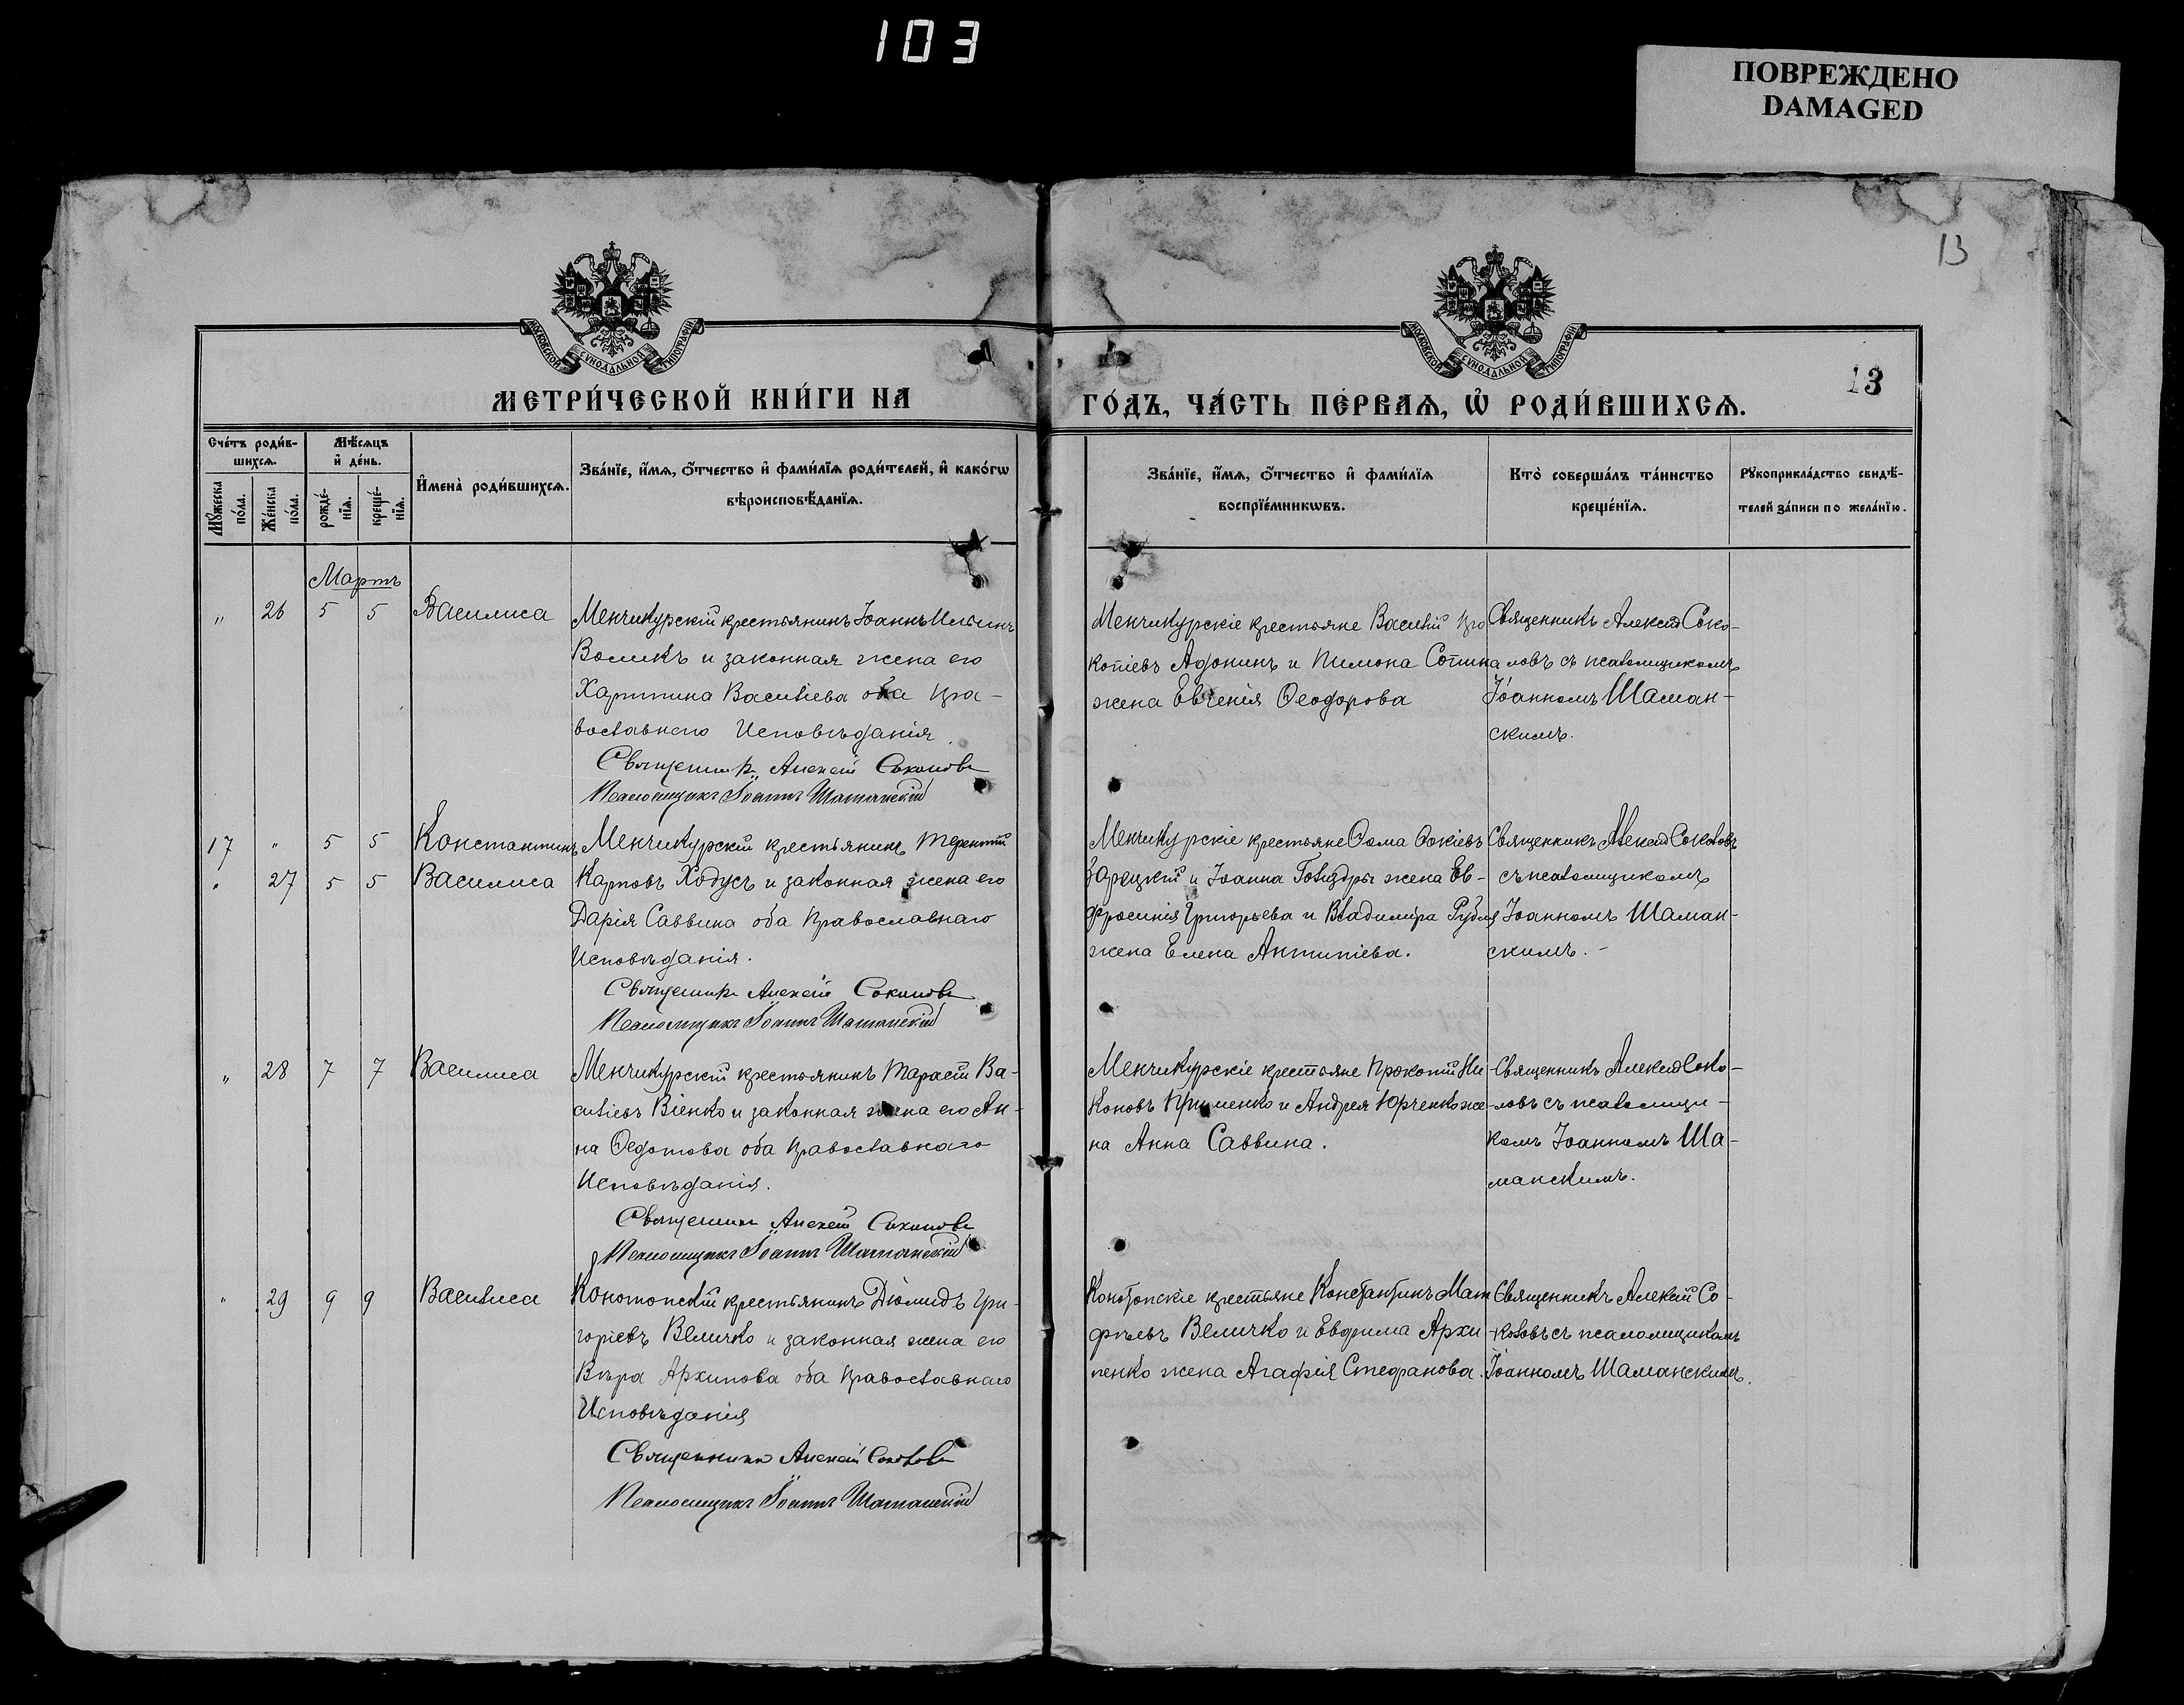 103
ПОВРЕЖДЕНО
DAMAGED
13
МОСКОВСКОЙ СѴНОДАЛЬНОЙ ТИПОГРАФІИ
МОСКОВСКОЙ СѴНОДАЛЬНОЙ ТИПОГРАФІИ
13
МЕТРИ́ЧЕСКОЙ КНИ́ГИ НА
ГО́ДЪ, ЧА́СТЬ ПЕ́РВАѦ, Ѡ҆ РОДИ́ВШИХСѦ.
Сче́тъ роди́в-
шихсѧ.
Мѣ́сѧцъ
и҆ де́нь.
Мꙋ́жеска
по́ла.
Же́нска
по́ла.
рожде́-
нїѧ.
креще́-
нїѧ.
И҆мена̀ роди́вшихсѧ.
Зва́нїе, и҆́мѧ, о҆́тчество и҆ фами́лїѧ роди́телей, и҆ како́гѡ
вѣроисповѣ́данїѧ.
Зва́нїе, и҆́мѧ, о҆́тчество и҆ фами́лїѧ
воспрїе́мникѡвъ.
Кто̀ соверша́лъ та́инство
креще́нїѧ.
Рꙋкоприкла́дство свидѣ́-
телей за́писи по жела́нїю.
Мартъ
" 26 5 5 Василиса
Менчикурскій крестьянинъ Іоаннъ Ильинъ
Воликъ и законная жена его
Харитина Васильева оба пра-
вославнаго Исповѣданія
Священникъ Алексій Соколовъ
Псаломщикъ Іоаннъ Шаманскій
Менчикурскіе крестьяне Василій Про
копіевъ Адонинъ и Пимона Сопина
жена Евгенія Ѳеодорова
Священникъ Алексій Соко-
ловъ съ псаломщикомъ
Іоанномъ Шаман-
скимъ.
17 " 5 5 Константинъ
" 27 5 5 Василиса
Менчикурскій крестьянинъ Терентій
Карповъ Ходусъ и законная жена его
Дарія Саввина оба православнаго
Исповѣданія.
Священникъ Алексій Соколовъ
Псаломщикъ Іоаннъ Шаманскій
Менчикурскіе крестьяне Ѳома Ѳокіевъ
Зарецкій и Іоанна Говиздры жена Ев-
фросинія Григорьева и Владиміра Рубля
жена Елена Антипіева.
Священникъ Алексій Соколовъ
съ псаломщикомъ
Іоанномъ Шаман-
скимъ.-
" 28 7 7 Василиса
Менчикурскій крестьянинъ Тарасій Ва-
сильевъ Віенко и законная жена его Ан-
на Ѳедотова оба православнаго
Исповѣданія.
Священникъ Алексій Соколовъ
Псаломщикъ Іоаннъ Шаманскій
Менчикурскіе крестьяне Прокопій Ни-
коновъ Применко и Андрея Юрченко же-
на Анна Саввина.
Священникъ Алексій Соко-
ловъ съ псаломщи-
комъ Іоанномъ Ша-
манскимъ.
" 29 9 9 Василиса
Конотопскій крестьянинъ Діомидъ Гри-
горіевъ Величко и законная жена его
Вѣра Архипова оба православнаго
Исповѣданія
Священникъ Алексій Соколовъ
Псаломщикъ Іоаннъ Шаманскій
Конотопскіе крестьяне Константинъ Мат
фѣевъ Величко и Евфима Архи-
пенко жена Агафія Стефанова.
Священникъ Алексій Со-
коловъ съ псаломщикомъ
Іоанномъ Шаманскимъ.